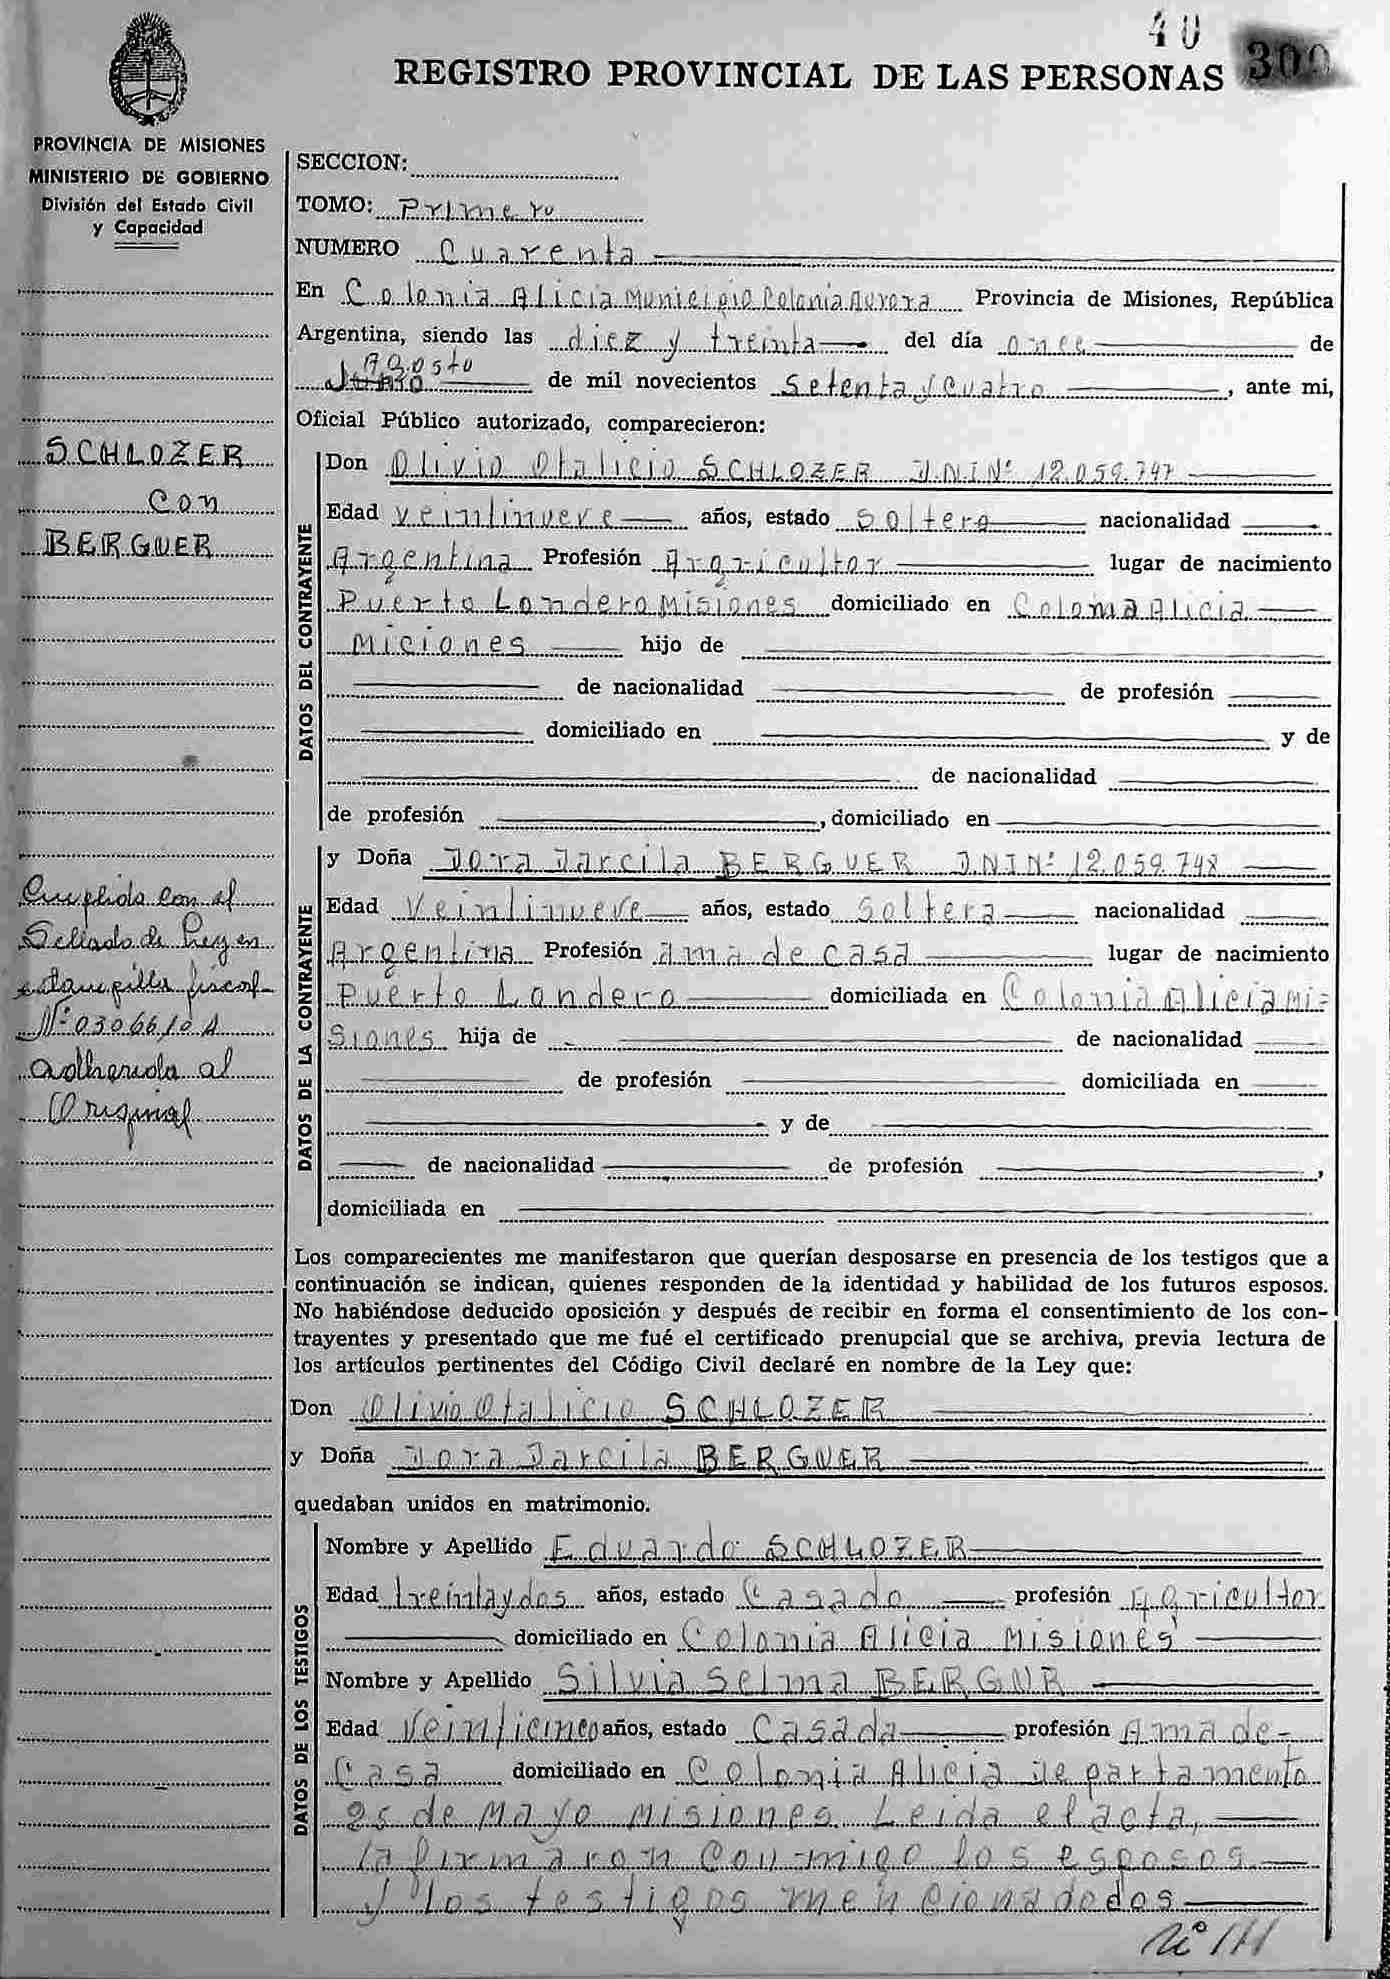 40
300
REGISTRO PROVINCIAL DE LAS PERSONAS
PROVINCIA DE MISIONES
MINISTERIO DE GOBIERNO
División del Estado Civil
y Capacidad
SCHLOZER
con
BERGUER
Cumplido con el
Sellado de Ley en
estampilla fiscal
Nº 0306610 A
adherida al
Original
SECCION:
TOMO: Primero
NUMERO Cuarenta
En Colonia Alicia Municipio Colonia Aurora Provincia de Misiones, República
Argentina, siendo las diez y treinta del día once de
Agosto
de mil novecientos Setenta y Cuatro, ante mi,
Oficial Público autorizado, comparecieron:
DATOS DEL CONTRAYENTE
Don Olivio Otalicio SCHLOZER D.N.I Nº 12.059.747
Edad veintinueve años, estado soltero nacionalidad
Argentina Profesión Argricultor lugar de nacimiento
Puerto Londero Misiones domiciliado en Colonia Alicia
Miciones hijo de
de nacionalidad de profesión
domiciliado en y de
de nacionalidad
de profesión , domiciliado en
DATOS DE LA CONTRAYENTE
y Doña Dora Darcila BERGUER D.N.I Nº 12.059.748
Edad Veintinueve años, estado Soltera nacionalidad
Argentina Profesión ama de casa lugar de nacimiento
Puerto Londero domiciliada en Colonia Alicia Mi=
siones hija de de nacionalidad
de profesión domiciliada en
y de
de nacionalidad de profesión ,
domiciliada en
Los comparecientes me manifestaron que querían desposarse en presencia de los testigos que a
continuación se indican, quienes responden de la identidad y habilidad de los futuros esposos.
No habiéndose deducido oposición y después de recibir en forma el consentimiento de los con-
trayentes y presentado que me fué el certificado prenupcial que se archiva, previa lectura de
los artículos pertinentes del Código Civil declaré en nombre de la Ley que:
Don Olivio Otalicio SCHLOZER
y Doña Dora Darcila BERGUER
quedaban unidos en matrimonio.
DATOS DE LOS TESTIGOS
Nombre y Apellido Eduardo SCHLOZER
Edad treintaydos años, estado Casado profesión Agricultor
domiciliado en Colonia Alicia Misiones
Nombre y Apellido Silvia Selma BERGUR
Edad Veinticinco años, estado Casada profesión Ama de-
Casa domiciliado en Colonia Alicia Departamento
25 de Mayo Misiones. Leida el acta,
la firmaron conmigo los esposos
y los testigos mencionadodos
Nº 111